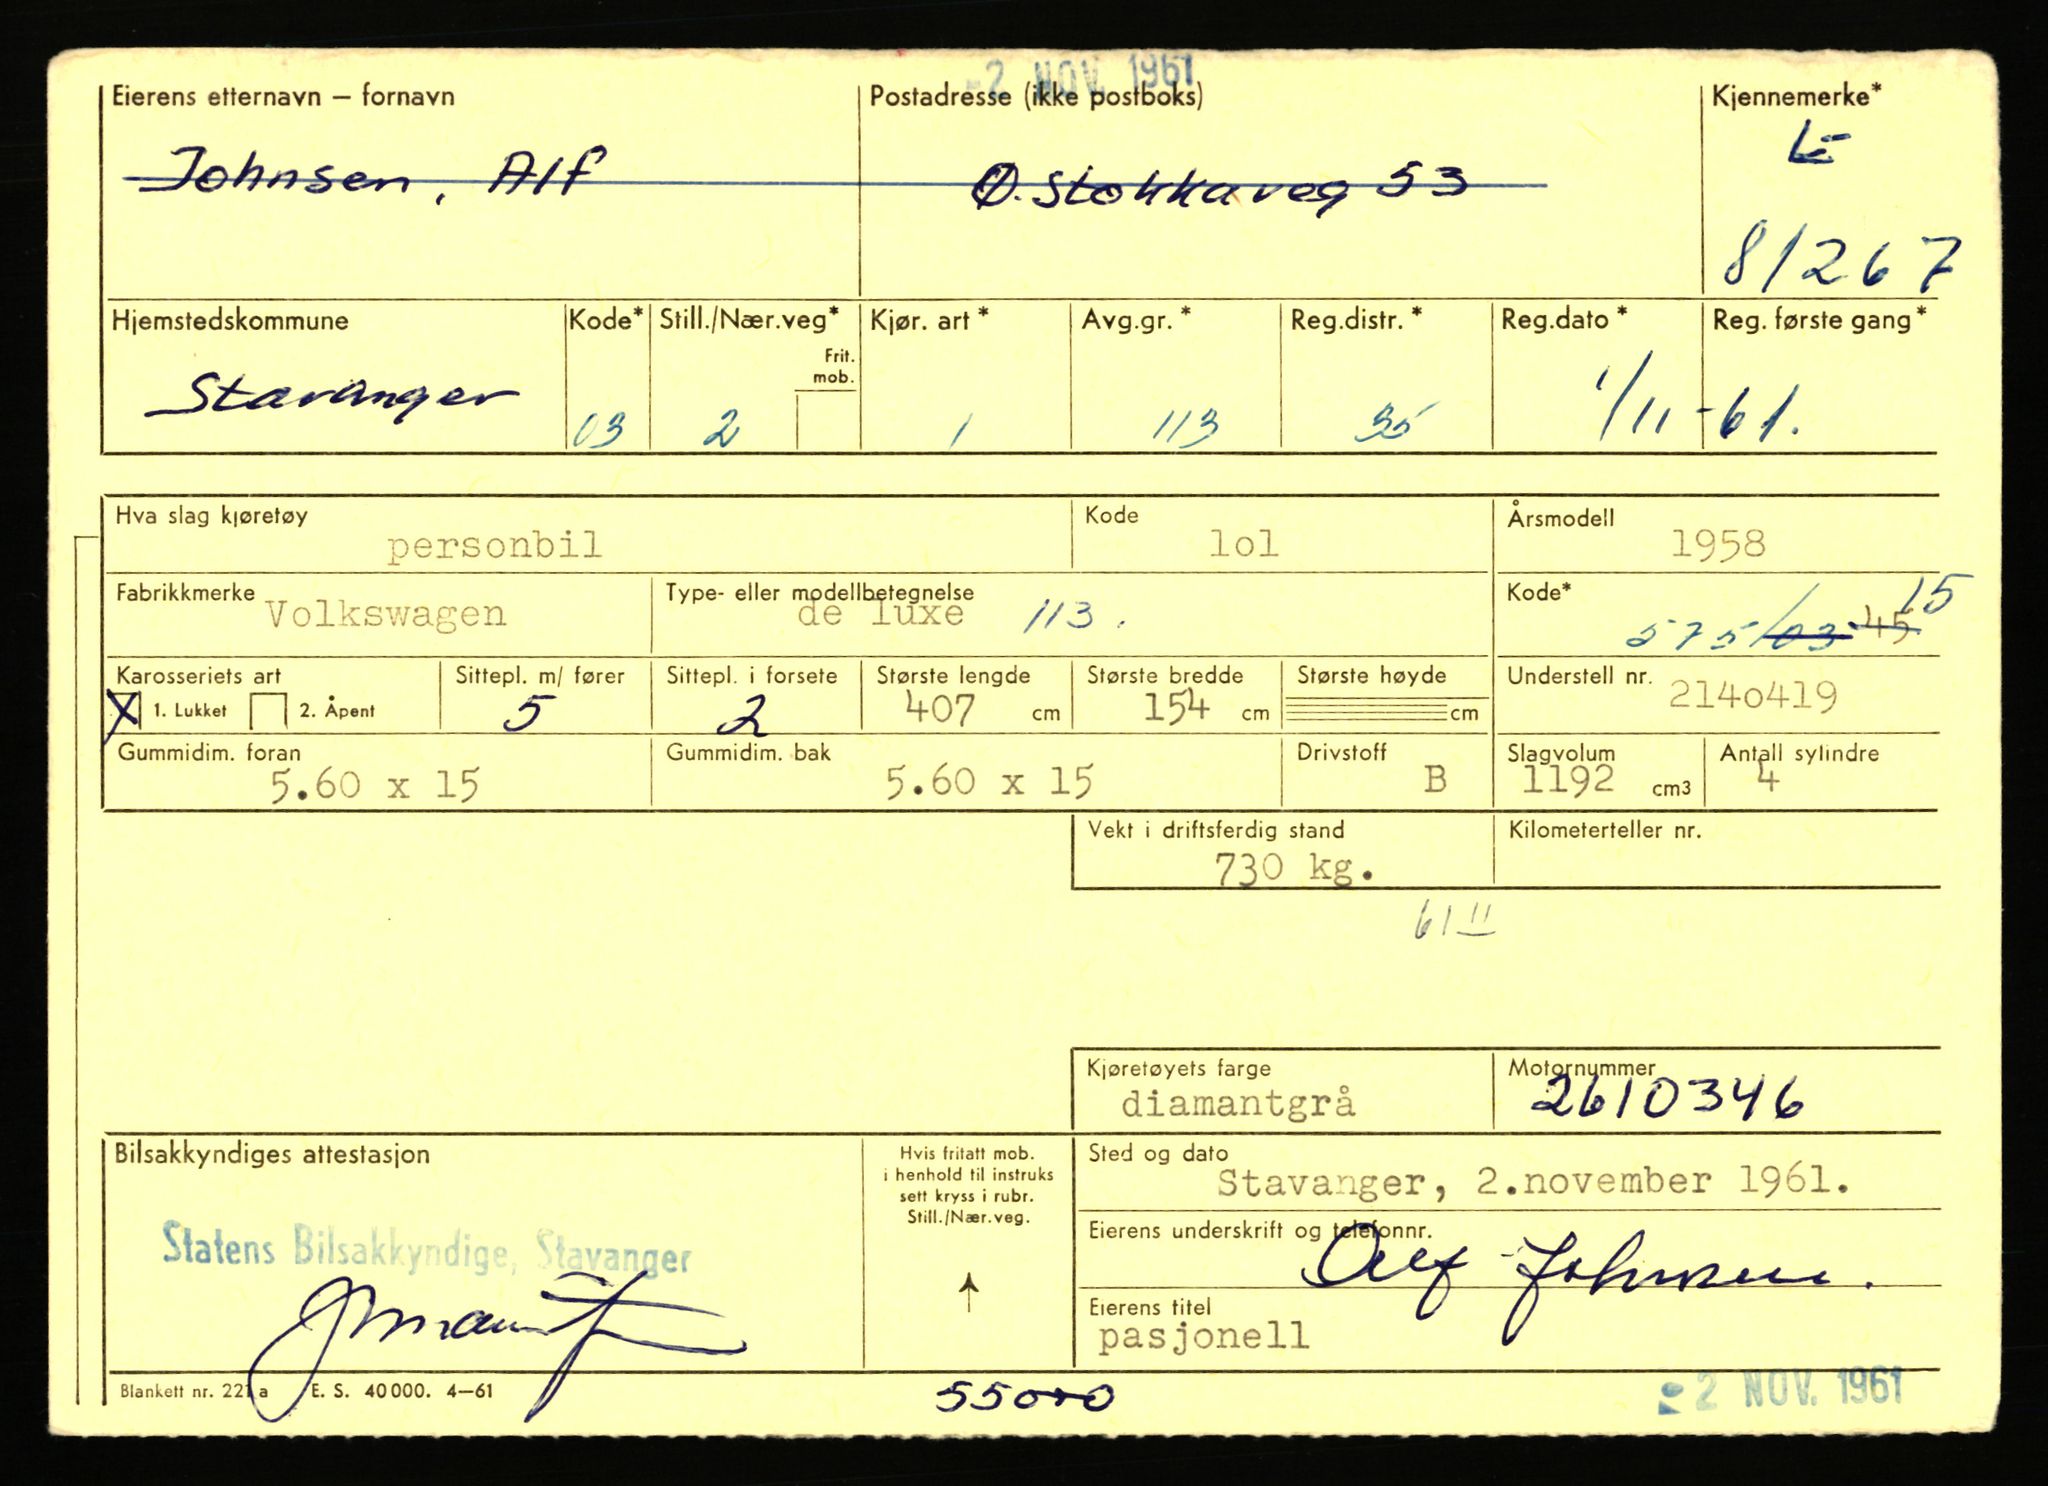 -2 NOV. 1961
Eierens etternavn – fornavn Postadresse (ikke postboks) Kjennemerke*
Johnsen, Alf Ø. Stokkaveg 53 L-
81267
Hjemstedskommune Kode* Still./Nær.veg* Kjør. art * Avg.gr. * Reg.distr. * Reg.dato * Reg. første gang*
Frit.
mob.
Stavanger 03 2 1 113 35 1/11-61.
Hva slag kjøretøy Kode Årsmodell
personbil lol 1958
Fabrikkmerke Type- eller modellbetegnelse Kode*
Volkswagen de luxe 113. 575/03 45 15
Karosseriets art Sittepl. m/ fører Sittepl. i forsete Største lengde Største bredde Største høyde Understell nr.
X 1. Lukket 2. Åpent 5 2 407 cm 154 cm cm 2140419
Gummidim. foran Gummidim. bak Drivstoff Slagvolum Antall sylindre
5.60 x 15 5.60 x 15 B 1192 cm3 4
Vekt i driftsferdig stand Kilometerteller nr.
730 kg.
61 II
Kjøretøyets farge Motornummer
diamantgrå 2610346
Bilsakkyndiges attestasjon Hvis fritatt mob. Sted og dato
i henhold til instruks
sett kryss i rubr.
Still./Nær.veg.
Stavanger, 2.november 1961.
Statens Bilsakkyndige, Stavanger
Eierens underskrift og telefonnr.
Alf Johnsen.
Eierens titel
pasjonell
Blankett nr. 221 a E. S. 40000. 4—61 55000 -2 NOV. 1961